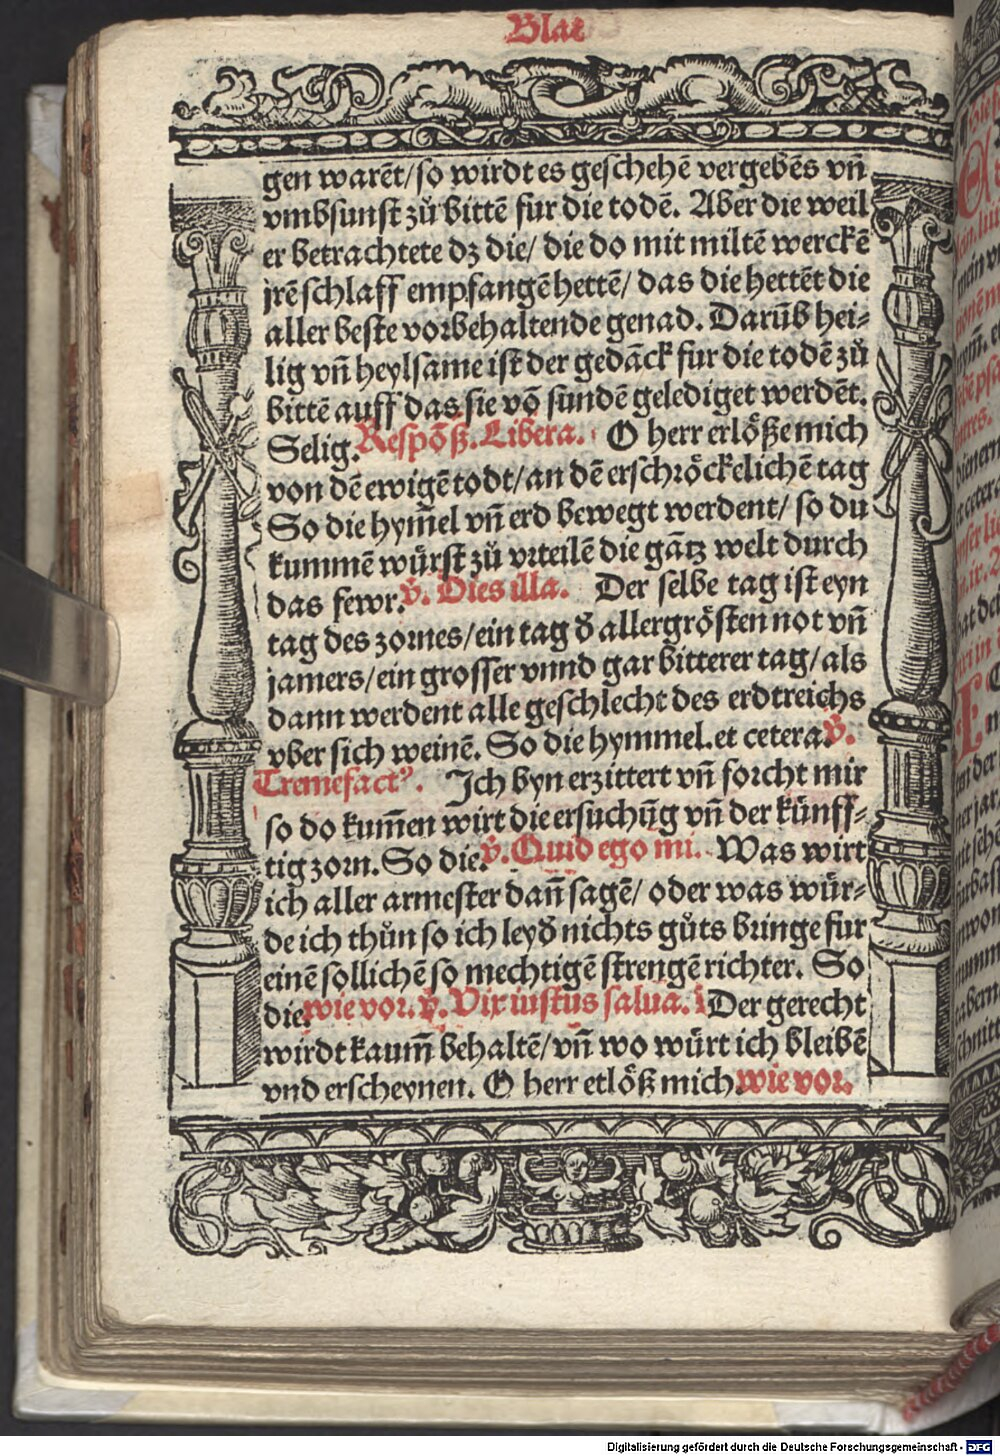 Blat
gen warēt/so wirdt es geschehē vergebēs vñ
vmbsunst zů bittē fur die todē. Aber die weil
er betrachtete dz die/ die do mit miltē werckē
jrē schlaff empfangē hettē/ das die hettēt die
aller beste vorbehaltende genad. Darūb hei-
lig vñ heylsame ist der gedāck fur die todē zů
bittē auff das sie vō sundē gelediget werdēt.
Selig. Respōß. Libera. O herr erlöße mich
von dē ewigē todt/an dē erschröckelichē tag
So die hym̄el vñ erd bewegt werdent/ so du
kummē würst zů vrteilē die gātz welt durch
das fewr. v̄. Dies illa. Der selbe tag ist eyn
tag des zornes/ein tag ð allergrösten not vñ
jamers/ein grosser vnnd gar bitterer tag/als
dann werdent alle geschlecht des erdtreichs
vber sich weinē. So die hymmel.et cetera. v̄.
Tremefactꝰ. Ich byn erzittert vñ forcht mir
so do kum̄en wirt die ersuchūg vñ der künff-
tig zorn. So die. v̄. Quid ego mi. Was wirt
ich aller armester dañ sagē/ oder was wür-
de ich thůn so ich leyð nichts gůts bringe fur
einē sollichē so mechtigē strengē richter. So
die. wie vor. v̄. Vix iustus salua. Der gerecht
wirdt kaum̄ behaltē/vñ wo würt ich bleibē
vnd erscheynen. O herr etlöß mich. wie vor.
Digitalisierung gefördert durch die Deutsche Forschungsgemeinschaft - DFG